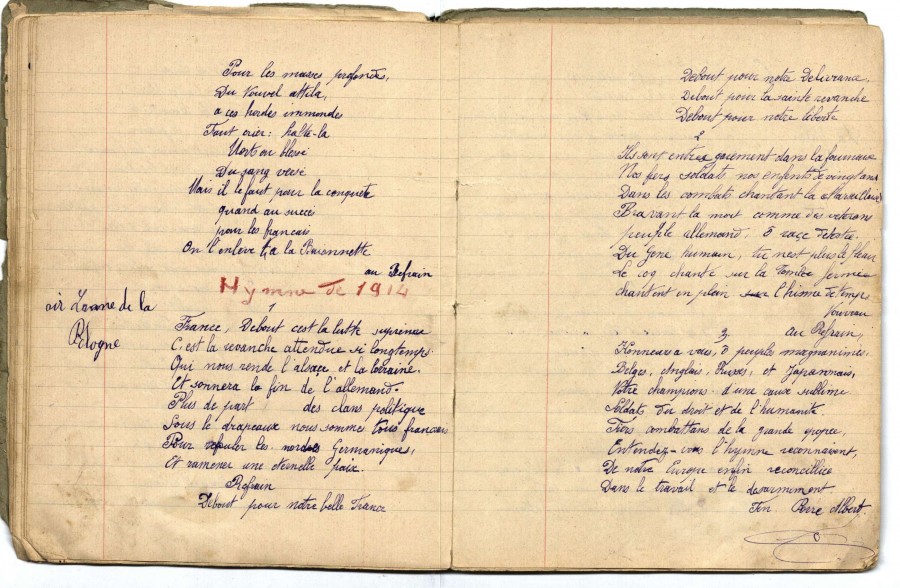 Pour les masses profondes,
Du Nouvel attila,
a ces hordes immondes
Faut crier: halte-la
Mort ou blessé
Du sang versé
Mais il le faut pour la conquete
quand au succes
pour les francais
On l'enleve a la Baïonnette
au Refrain
Hymne de 1914
air Larme de la
Pologne
1
France, Debout c'est la lutte supreme
C'est la revanche attendue si longtemps
Qui nous rende l'alsace et la lorraine.
Et sonnera la fin de l'allemand.
Plus de part des clans politique
Sous le drapeaux nous somme tous francais
Pour refouler les hordes Germaniques,
Et ramener une eternelle paix.
Refrain
Debout pour notre belle France
Debout pour notre Delivrance,
Debout pour la sainte revanche
Debout pour notre liberté
2
Ils sont entres gaiement dans la fournaise
Nos fiers soldats nos enfants de vingt ans
Dans les combats chantant la Marseillaise
Bravant la mort comme des veterans
peuple allemand, O race detestée.
Du Genre humain, tu n'est plus le fleau
Le coq chante sur la
chantent en plein l'himne de temps
Nouveau
" " " 3 au Refrain,
Honneur a vous, o peuple magnanimes
Belges, Anglais, Russes, et Japonnais,
Votre champions d'une cause sublime
Soldats du droit et de l'humanité.
Fiers combattans de la grande epopee,
Entendez-vous l'hymne reconnaisant,
De notre Europe enfin reconcilliee
Dans le travail et le desarmement.
Fin Albert